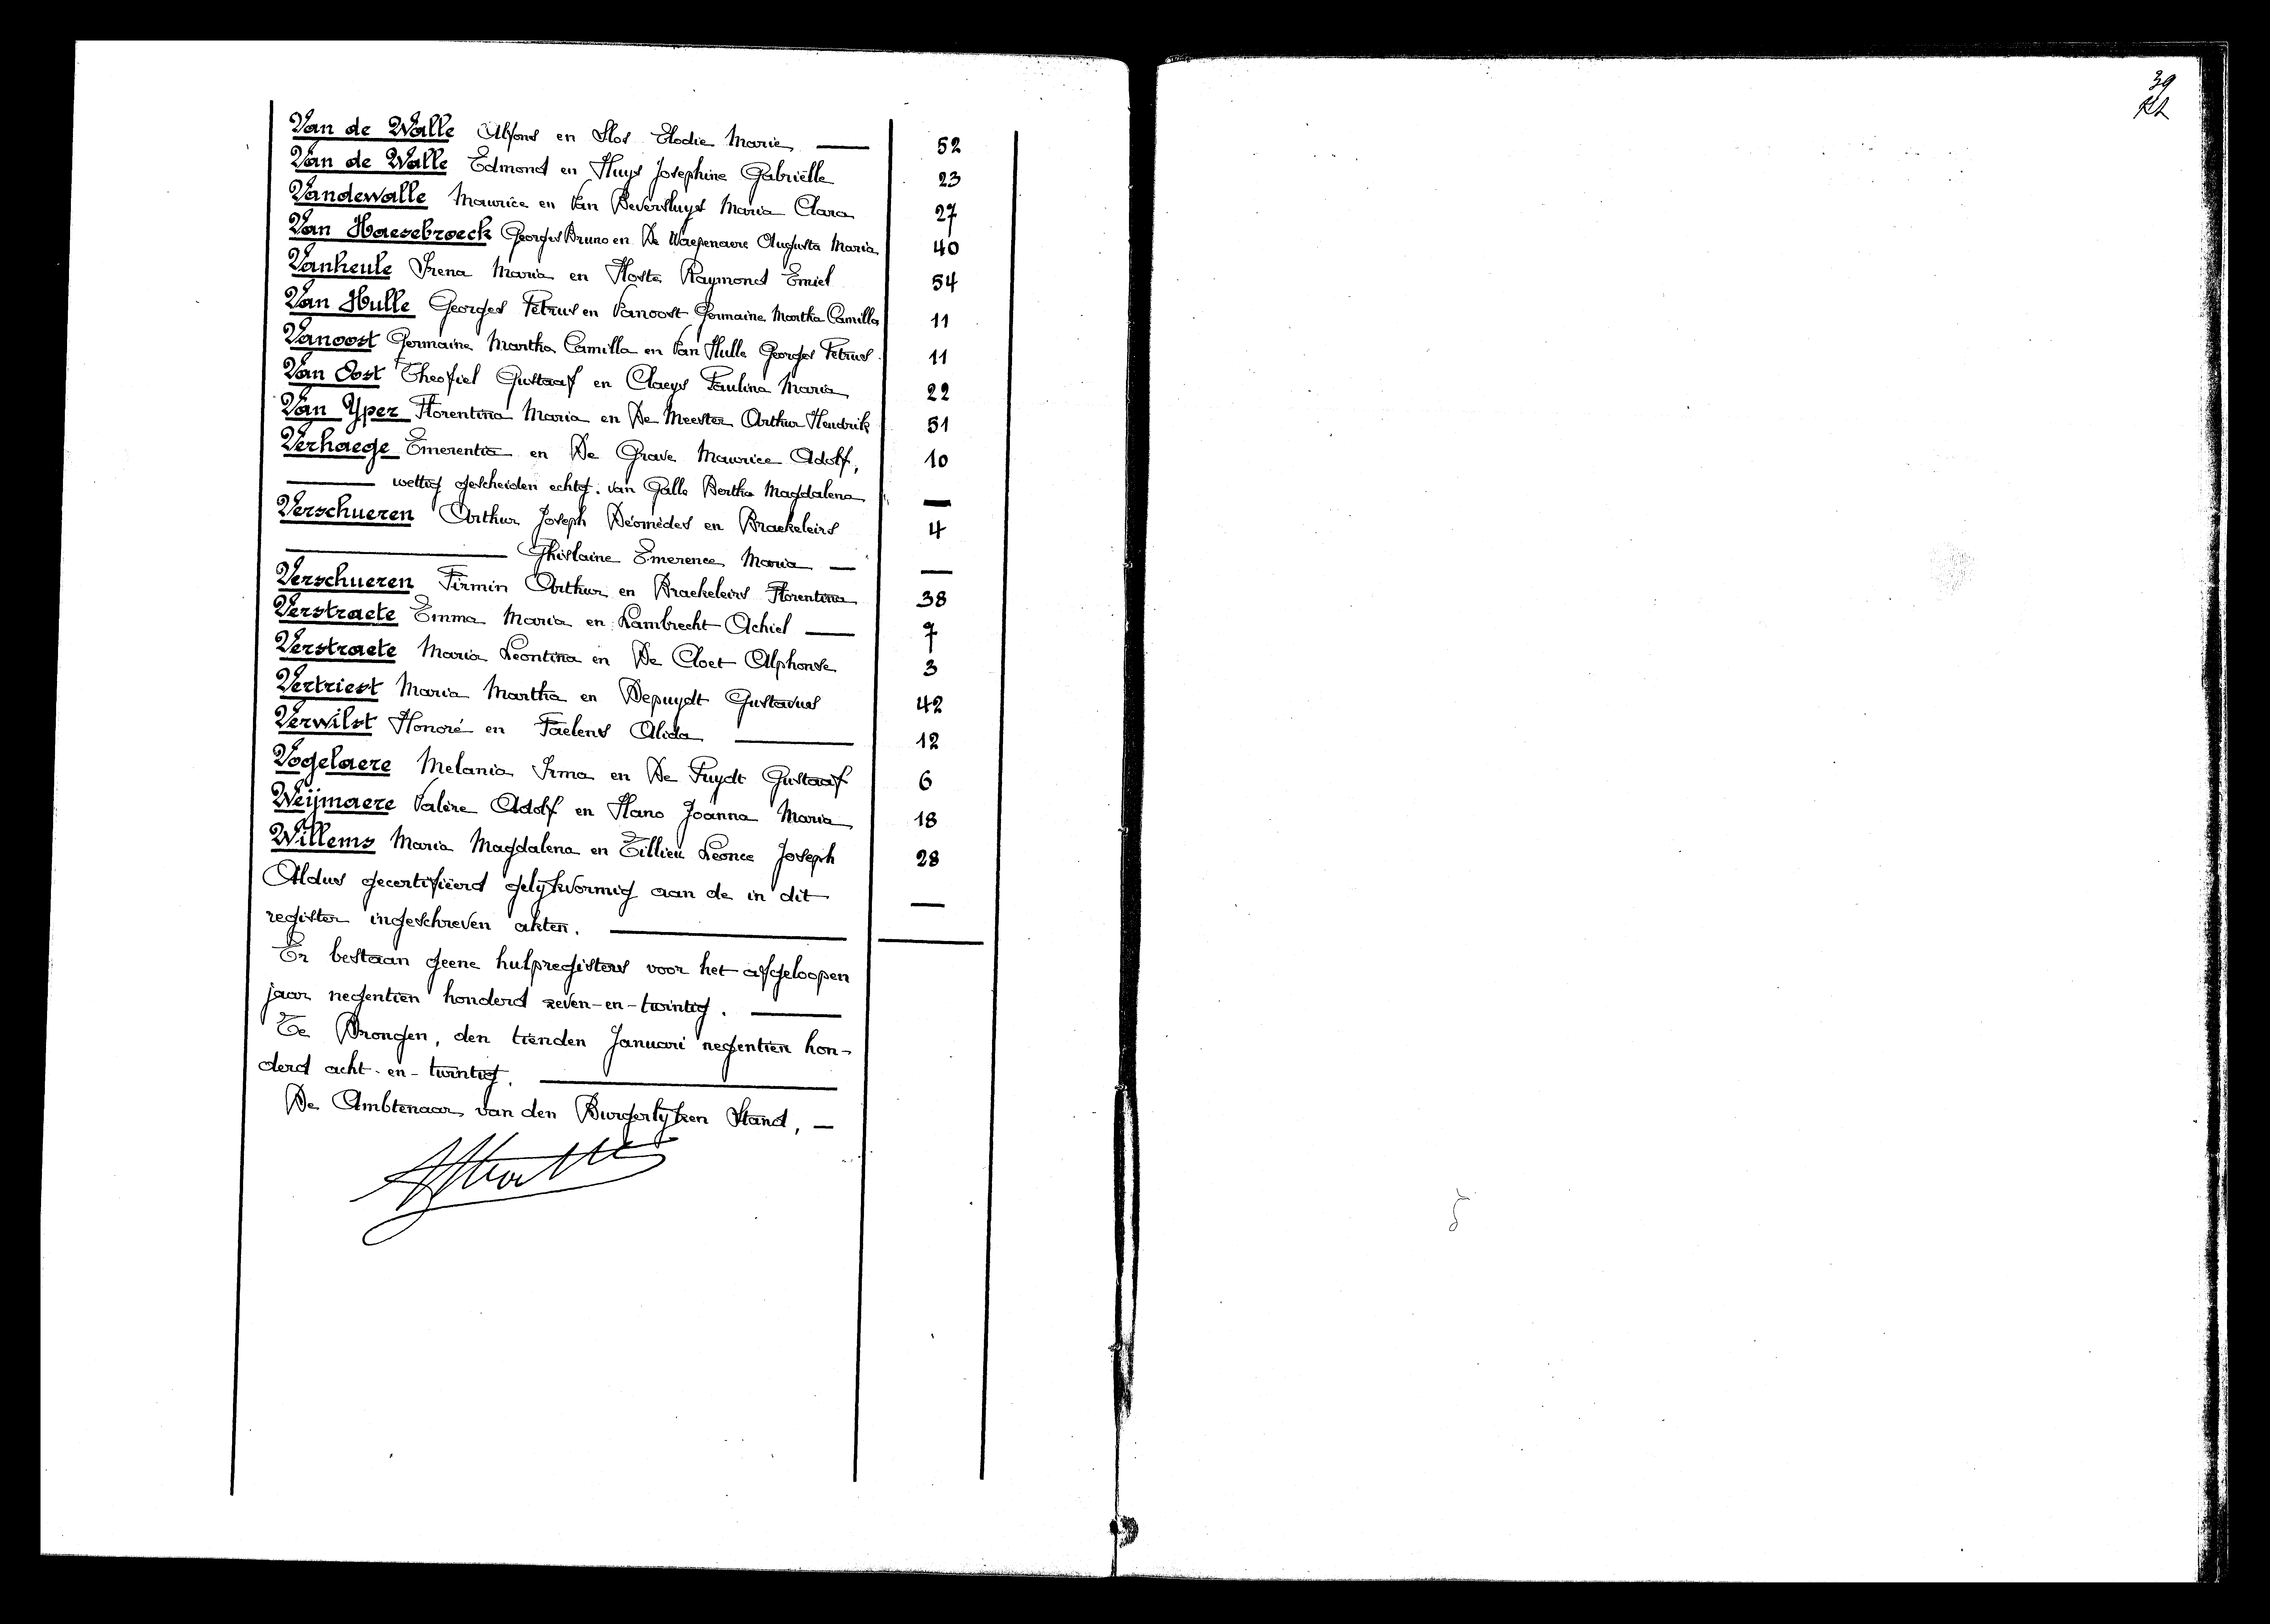 Van de Walle Alfons en Slos Elodie Marie 52
Van de Walle Edmond en Huys Josephine Gabriëlle 23
Vandewalle Maurice en Van Beversluys Maria Clara 27
Van Haesebroeck Georges Bruno en De Waepenaere Augusta Maria 40
Vanheule Irena Maria en Hoste Raymond Emiel 54
Van Hulle Georges Petrus en Vanoost Germaine Martha Camilla 11
Vanoost Germaine Martha Camilla en Van Hulle Georges Petrus 11
Van Oost Theofiel Gustaaf en Claeys Paulina Maria 22
Van Yper Florentina Maria en De Meester Arthur Hendrik 51
Verhaege Emerentia en De Grave Maurice Adolf, 10
wettig gescheiden echtg. van Galle Bertha Magdalena —
Verschueren Arthur Joseph Déomèdes en Braekeleirs 4
Ghislaine Emerence Maria — —
Verschueren Firmin Arthur en Braekeleirs Florentina 38
Verstraete Emma Maria en Lambrecht Achiel 7
Verstraete Maria Leontina en De Cloet Alphonse 3
Vertriest Maria Martha en Depuydt Gustavus 42
Verwilst Honoré en Faelens Alida 12
Vogelaere Melania Irma en De Puydt Gustaaf 6
Weijmaere Valère Adolf en Hano Joanna Maria 18
Willems Maria Magdalena en Tillieu Leonce Joseph 28
Aldus gecertifiëerd gelijkvormig aan de in dit —
register ingeschreven akten.
Er bestaan geene hulpregisters voor het afgeloopen
jaar negentien honderd zeven-en-twintig.
Te Drongen, den tienden Januari negentien hon-
derd acht-en-twintig.
De Ambtenaar van den Burgerlijken Stand, —
39